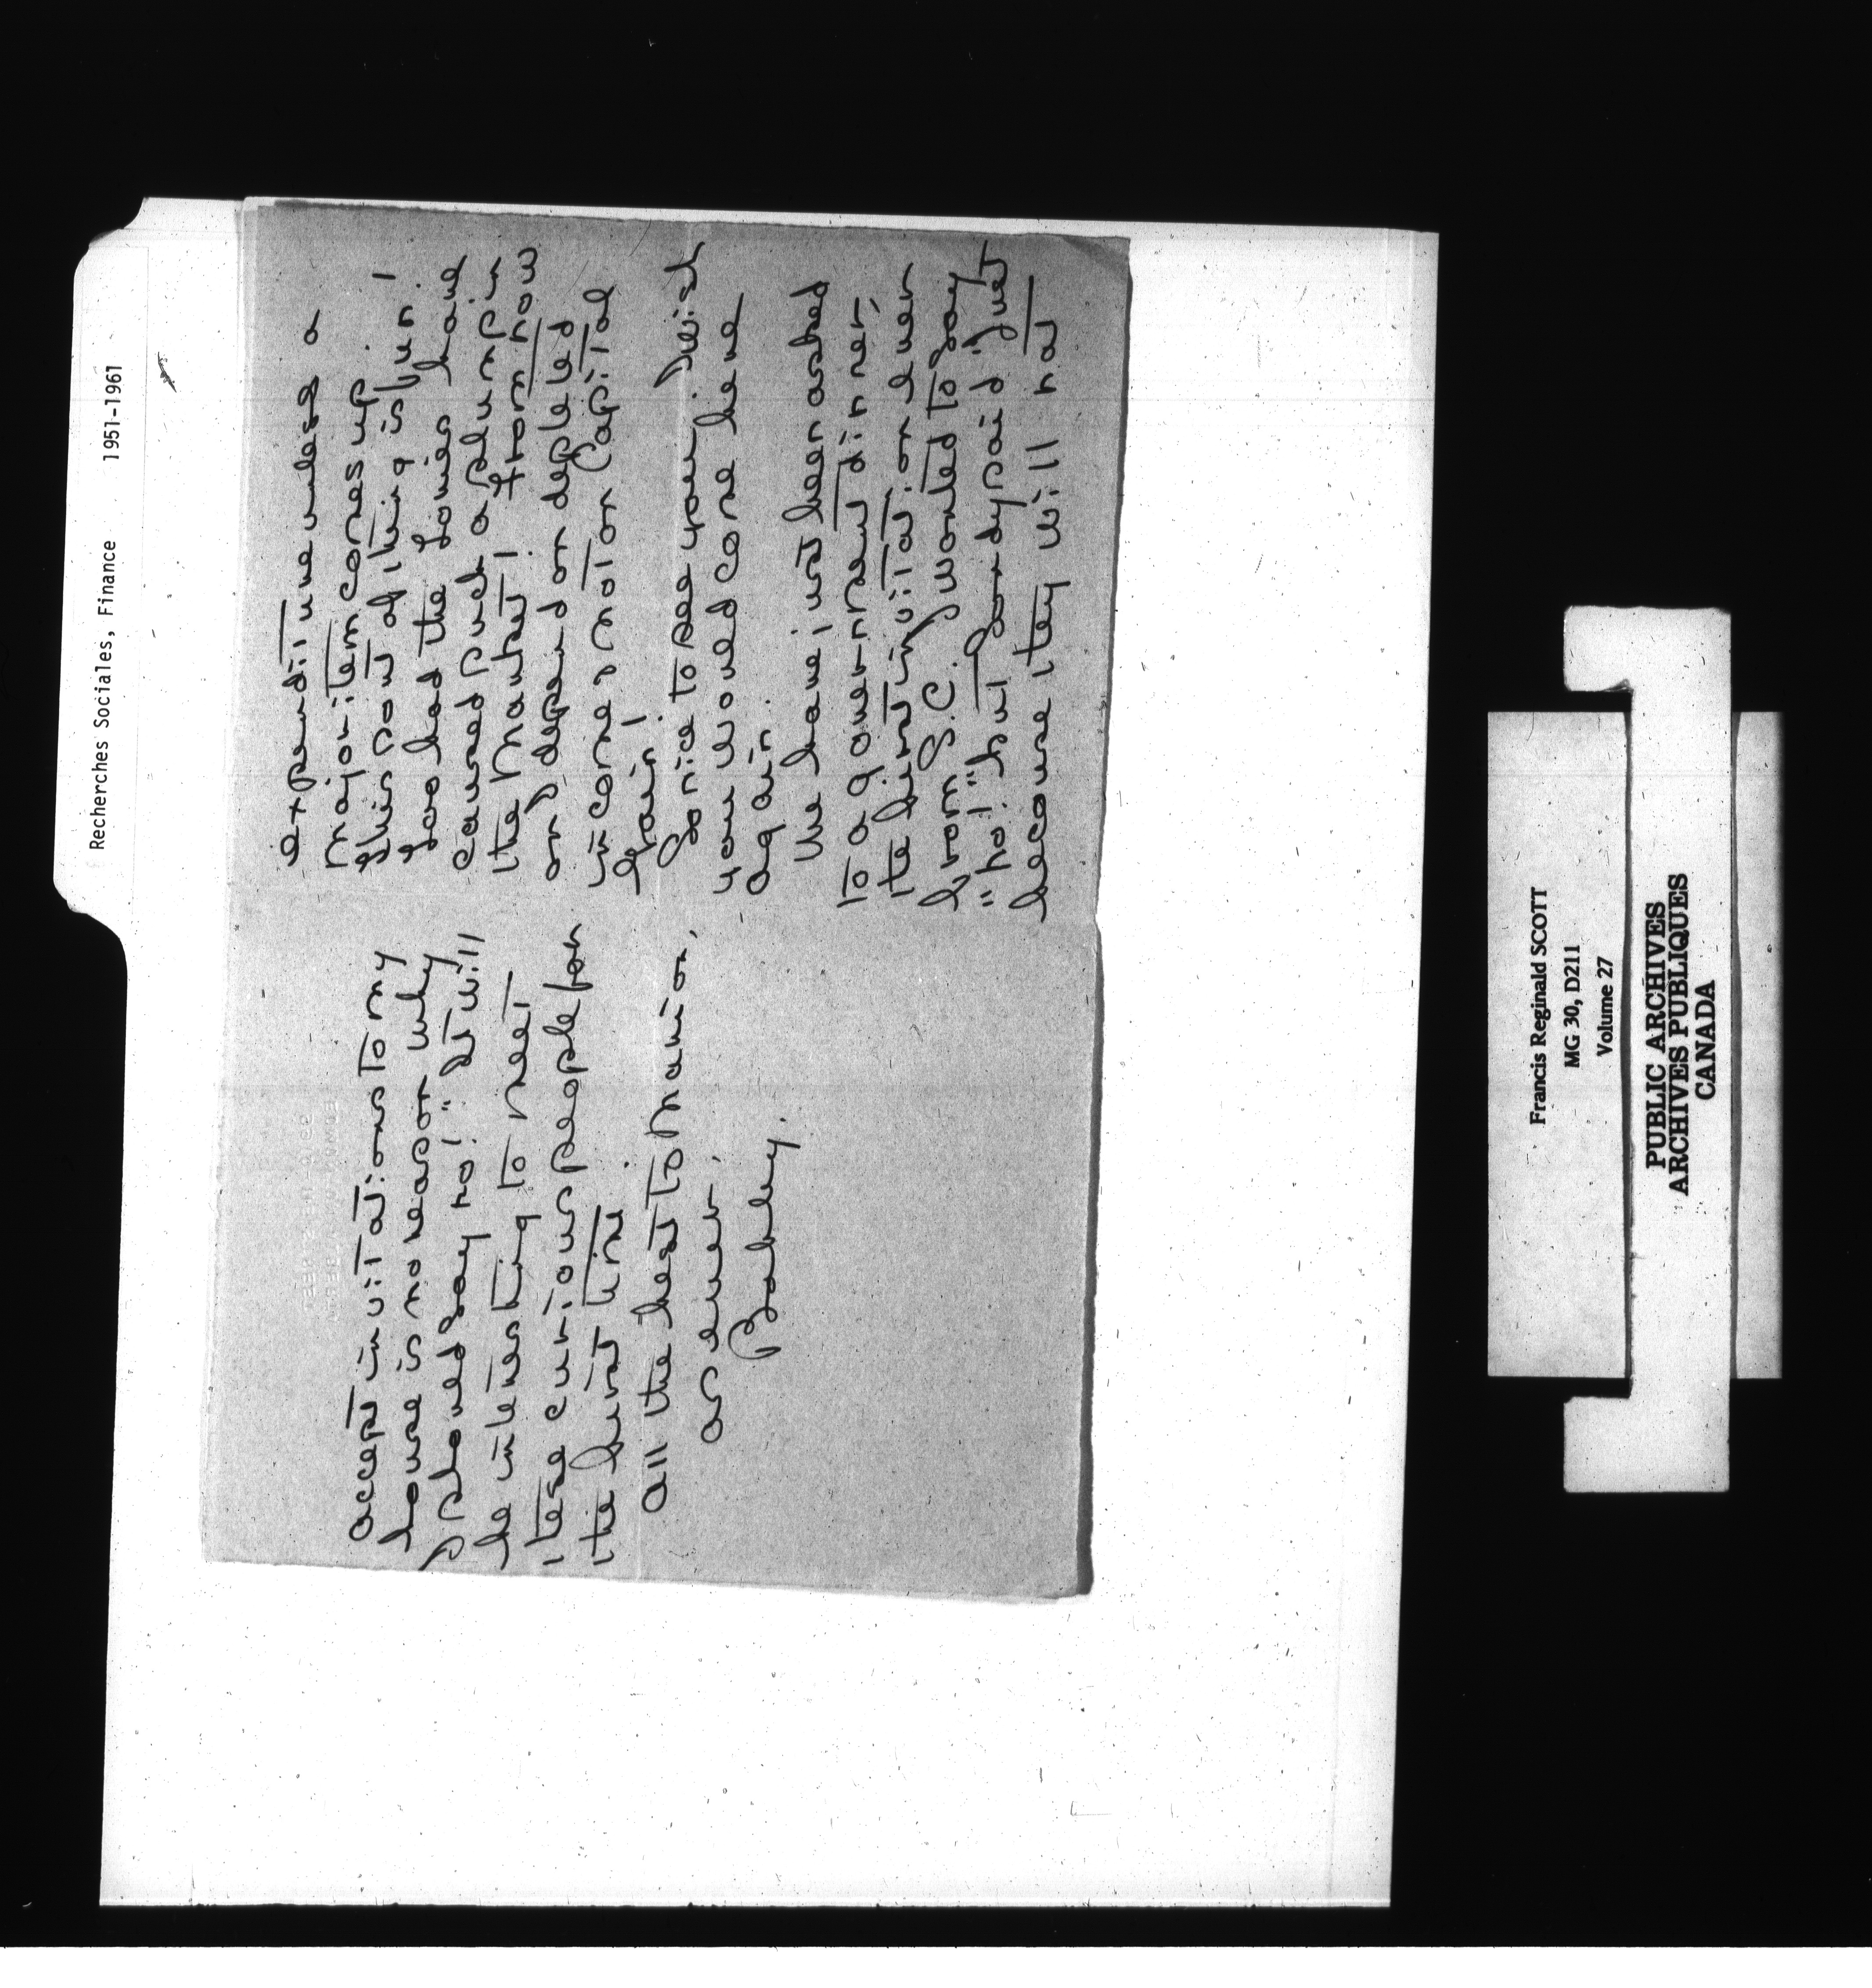 Recherches Sociales, Finance 1951-1961
expenditure unless a
major item comes up.
This sort of thing is fun!
Good had the Tories have
caused such a slump in
the market! From now
on I depend on depleted
income & not on Capital
gain!
So nice to see you. I wish
you would come here
again.
We have just been asked
to a government dinner,
the first invitation ever
from S.C. I wanted to say
"no!" but Sandy said "Just
because they will not
accept invitations to my
house is no reason why
I should say no!" It will
be interesting to meet
these curious people for
the first time.
All the best to Marion,
as ever,
Bobby.
Francis Reginald SCOTT
MG 30, D211
Volume 27
PUBLIC ARCHIVES
ARCHIVES PUBLIQUES
CANADA